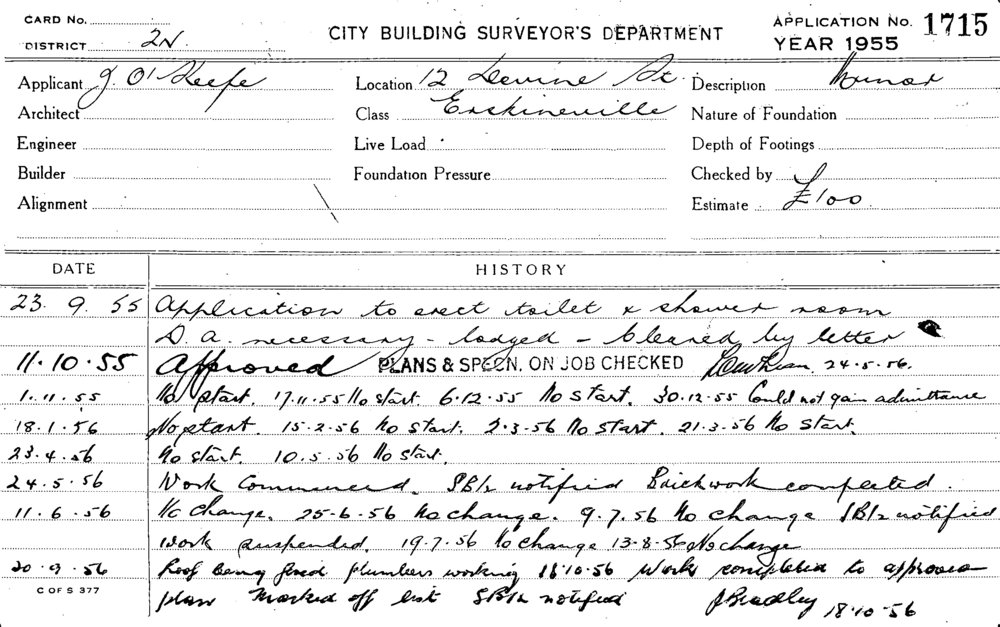 CARD No.
DISTRICT 2N.
CITY BUILDING SURVEYOR'S DEPARTMENT
APPLICATION No. 1715
YEAR 1955
Applicant J. O'Keefe Location 12 Devine St. Description Minor
Architect Class Erskineville Nature of Foundation
Engineer Live Load Depth of Footings
Builder Foundation Pressure Checked by
Alignment Estimate £100
DATE HISTORY
23. 9. 55 Application to erect toilet & shower room
D.A. necessary - lodged - cleared by letter
11.10.55 Approved PLANS & SPECN. ON JOB CHECKED 24.5.56.
1.11.55 No start. 17.11.55 No start 6.12.55 No start. 30.12.55 Could not gain admittance
18.1.56 No start. 15.2.56 No start. 2.3.56 No start. 21.3.56 No start.
23.4.56 No start. 10.5.56 No start.
24.5.56 Work Commenced. notified Brickwork completed.
11.6.56 No change. 25.6.56 No change. 9.7.56 No change notified
work suspended. 19.7.56 No change 13.8.56 No change
20.9.56 Roof being fixed plumbers working 18.10.56 Work completed to approved
C OF S 377
plan Marked off list notified J Bradley 18.10.56